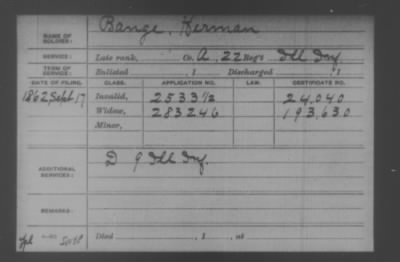 NAME OF SOLDIER: Bange, Herman
SERVICE: Late rank, Co. A, 22 Reg't Ill Inf.
TERM OF SERVICE: Enlisted , 1 Discharged , 1
DATE OF FILING. CLASS. APPLICATION NO. LAW. CERTIFICATE NO.
1862 Sept 17 Invalid, 2533½ 24,040
Widow, 283246 193,630
Minor,
ADDITIONAL SERVICES: D 9 Ill Inf.
REMARKS:
Died , 1 , at